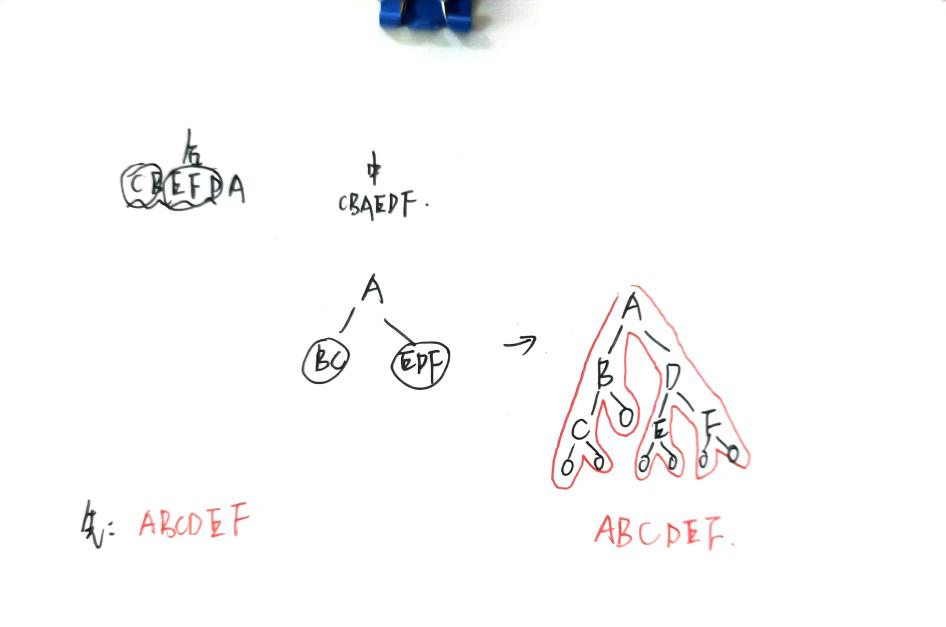 后
CBEFDA
中
CBAEDF.
A
BC
EDF
→
A
B
D
C
E
F
先: ABCDEF
ABCDEF.